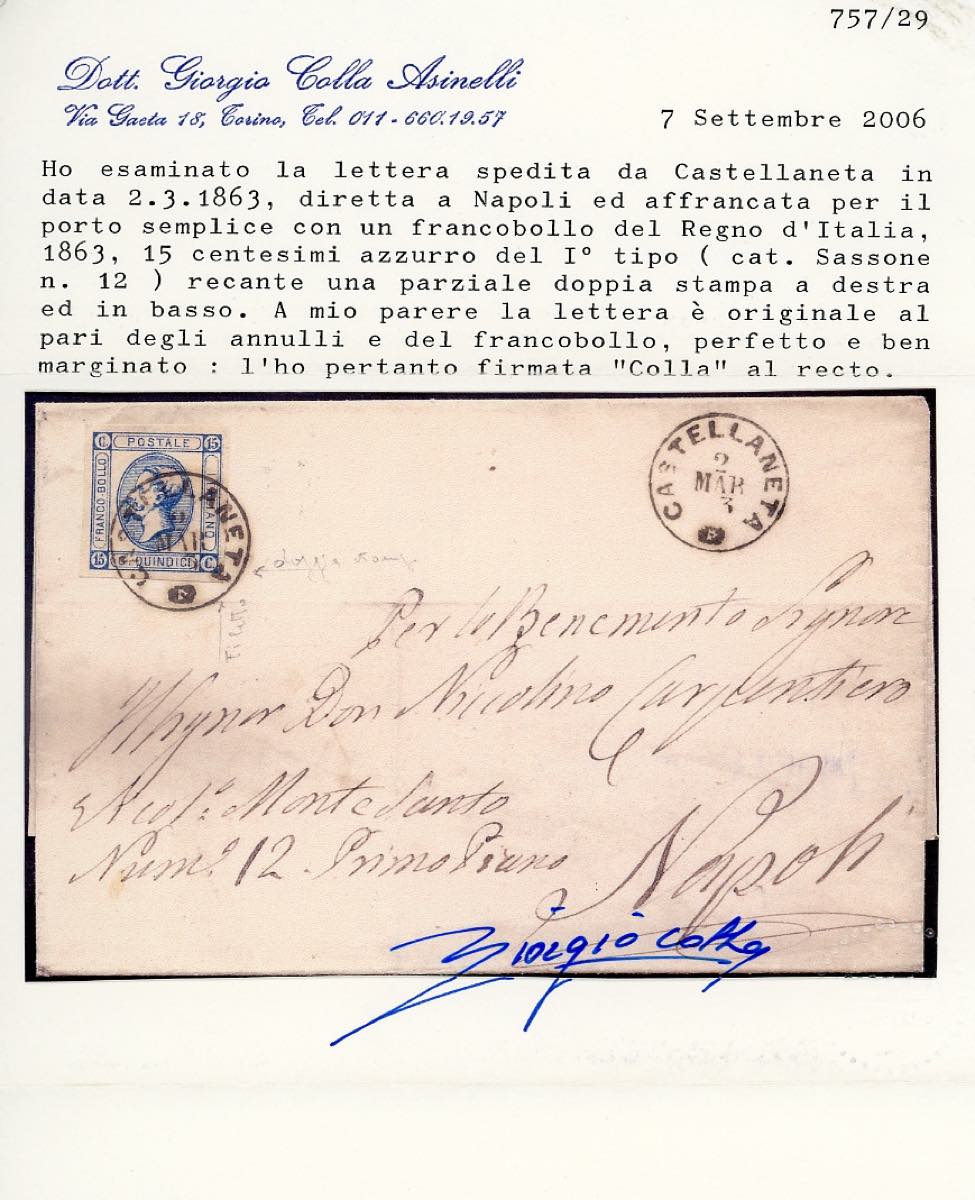 757/29
Dott. Giorgio Colla Asinelli
Via Gaeta 18, Torino, Tel. 011-660.19.57
7 Settembre 2006
Ho esaminato la lettera spedita da Castellaneta in
data 2.3.1863, diretta a Napoli ed affrancata per il
porto semplice con un francobollo del Regno d'Italia,
1863, 15 centesimi azzurro del I° tipo ( cat. Sassone
n. 12 ) recante una parziale doppia stampa a destra
ed in basso. A mio parere la lettera è originale al
pari degli annulli e del francobollo, perfetto e ben
marginato : l'ho pertanto firmata "Colla" al recto.
C. POSTALE 15
FRANCO BOLLO
15 QUINDICI C.
CASTELLANETA
2
MAR
3
Per lo Benemerito Signore
Don Nicolino Carpentiero
Monte Santo
Num.o 12 Primo Piano
Napoli
Filetto
Giorgio Colla